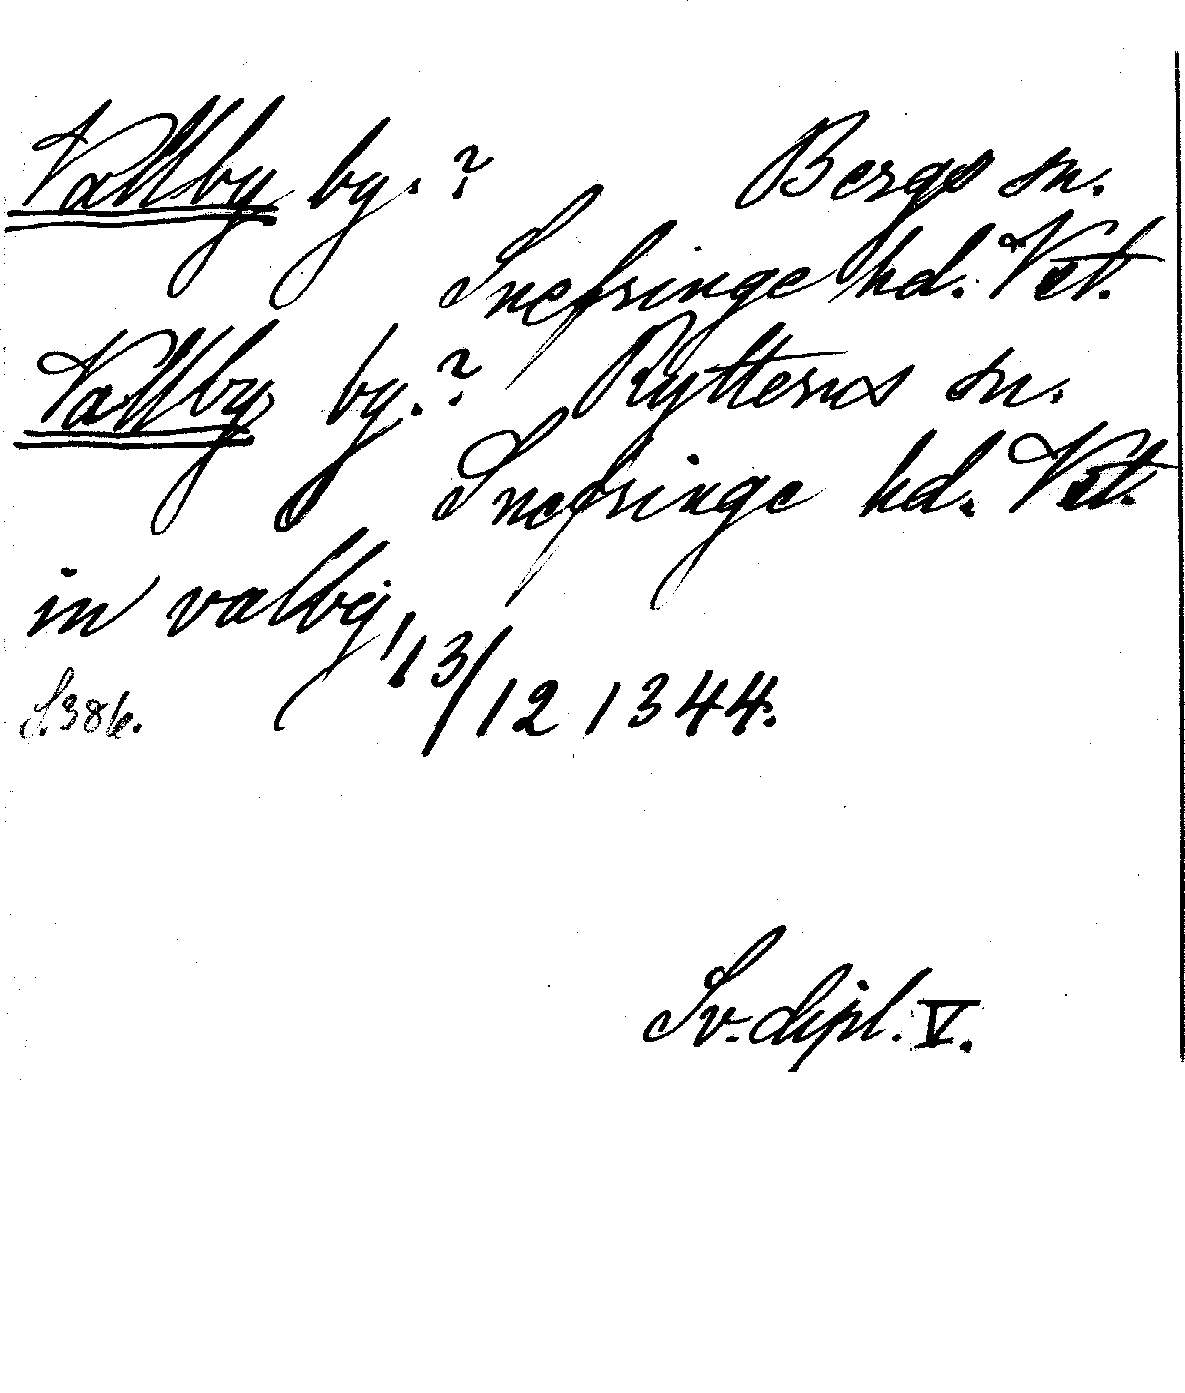 Vallby by. ? Bergs sn.
Snefringe hd. Vst.
Vallby by. ? Rytterns sn.
Snefringe hd. Vst.
in valby, 13/12 1344.
S. 386.
Sv. dipl. V.